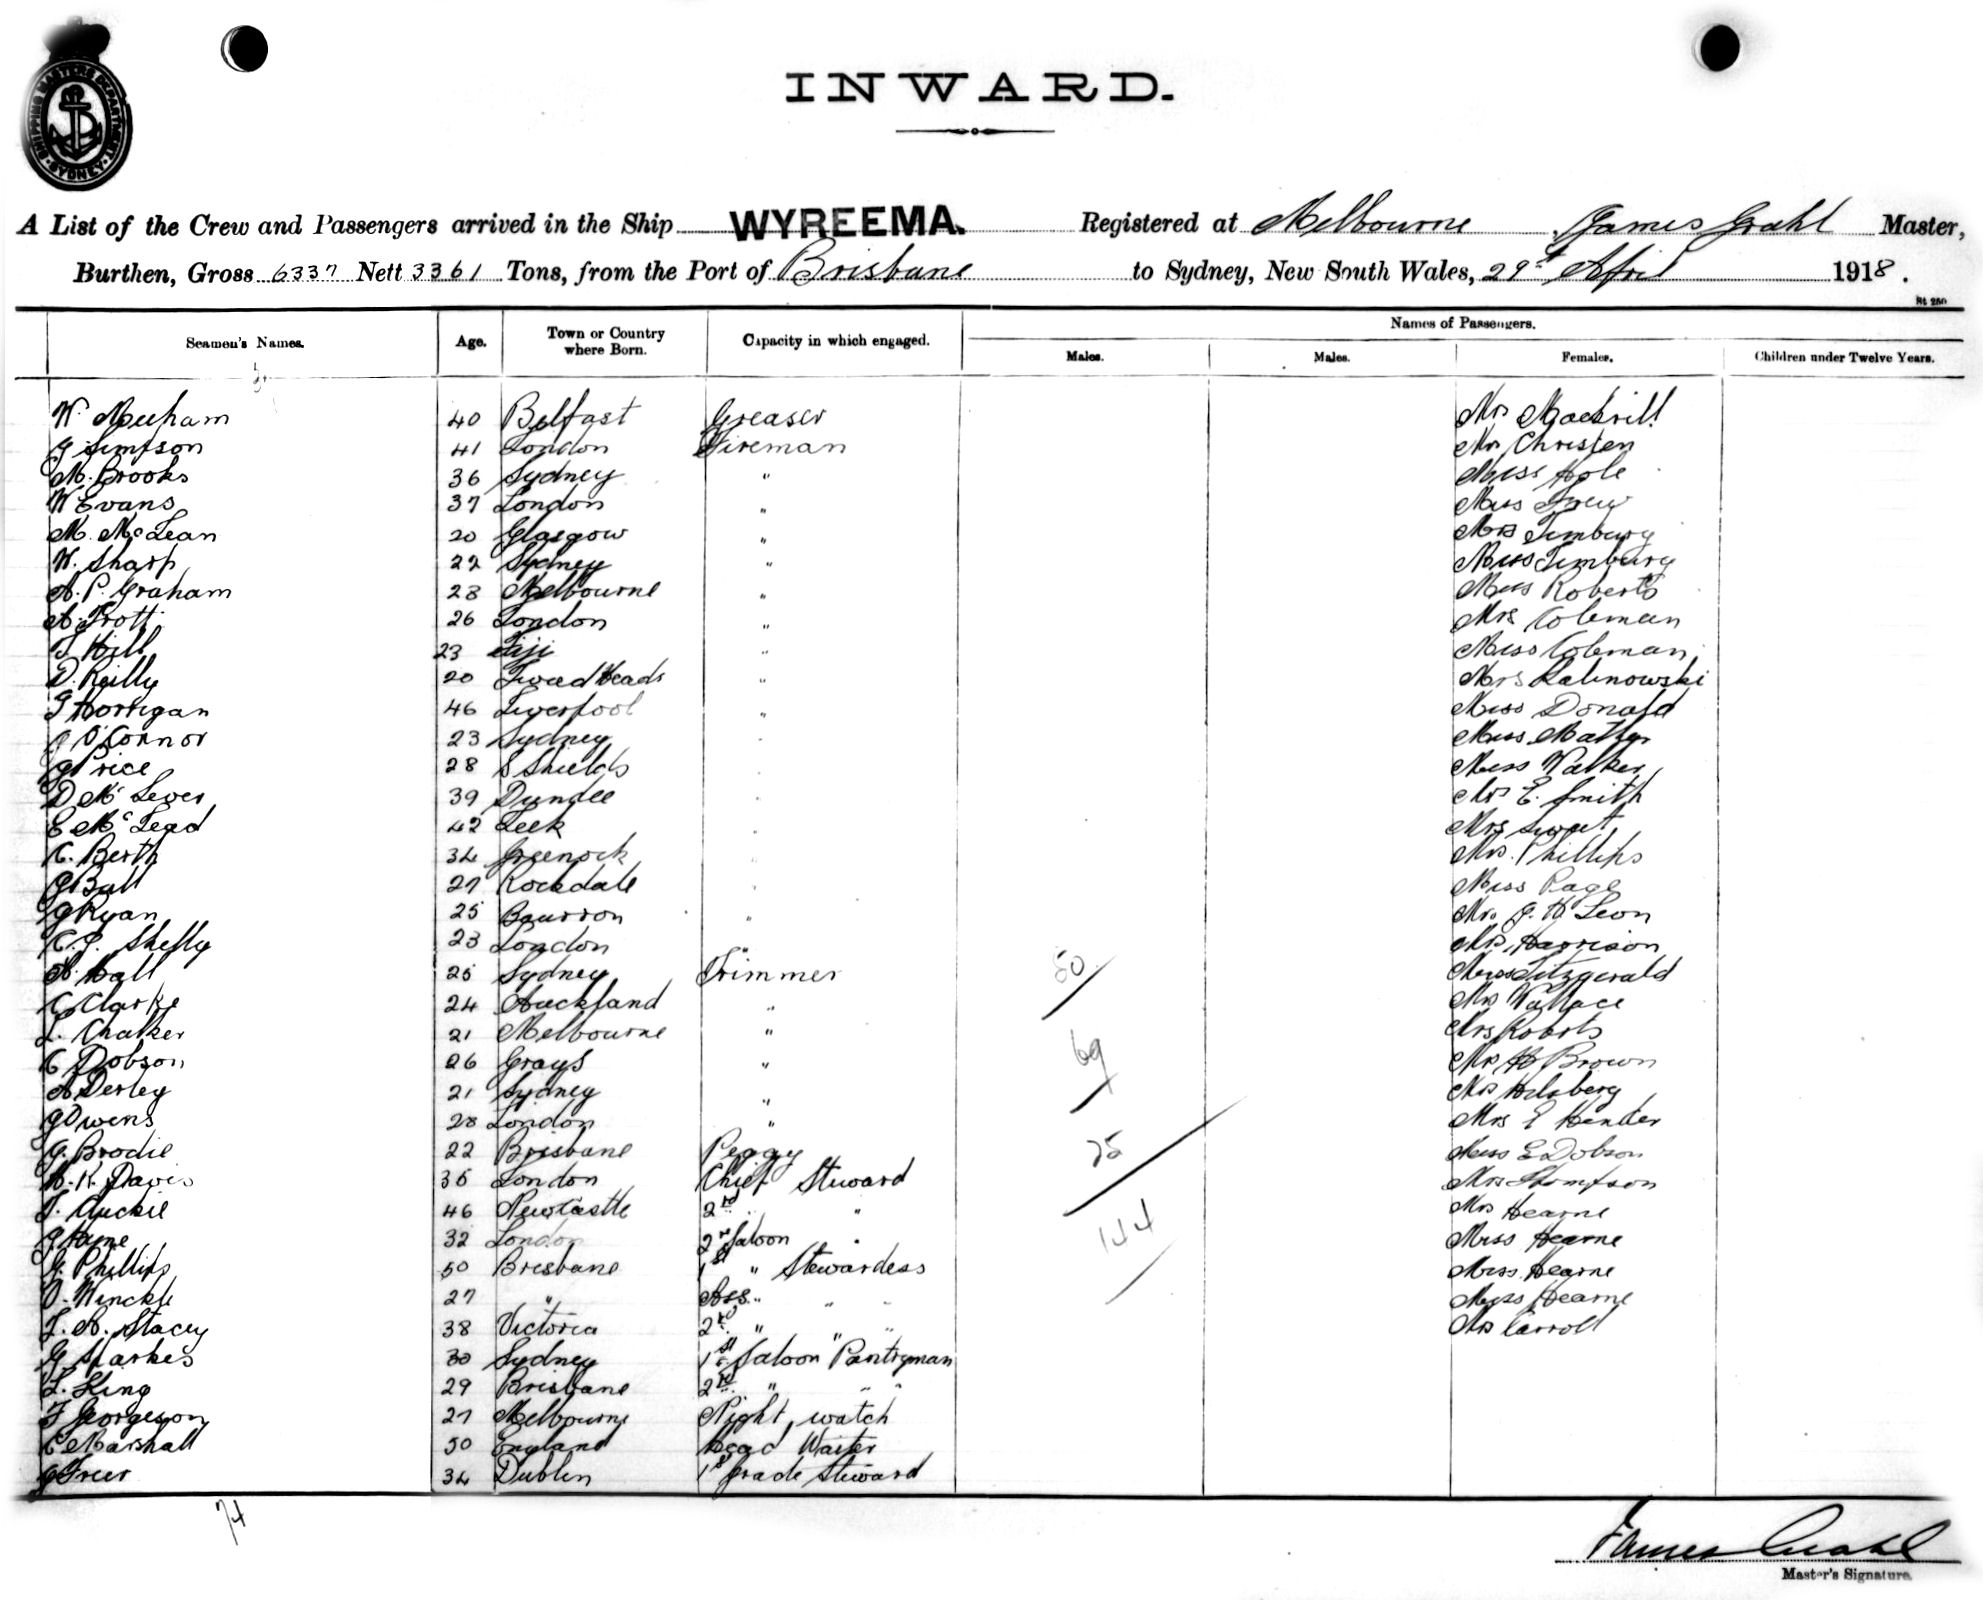 SHIPPING MASTERS DEPARTMENT
SYDNEY
INWARD.
A List of the Crew and Passengers arrived in the Ship WYREEMA. Registered at Melbourne, James Grahl Master,
Burthen, Gross 6337 Nett 3361 Tons, from the Port of Brisbane to Sydney, New South Wales, 29st April 1918.
St 250
Names of Passengers.
Seamen's Names. Age. Town or Country where Born. Capacity in which engaged. Males. Males. Females. Children under Twelve Years.
W. Meeham 40 Belfast Greaser Mrs Mackrill
G Simpson 41 London Fireman Mrs Christen
M. Brooks 36 Sydney " Miss Hole
W Evans 37 London " Miss Frew
M. McLean 20 Glasgow " Mrs Timbury
W. Sharp 22 Sydney " Miss Timbury
A. P. Graham 28 Melbourne " Miss Roberts
A. Trott 26 London " Mrs Coleman
T Hill 23 Fiji " Miss Coleman
D. Reilly 20 Tweed Heads " Mrs Kalinowski
J Horrigan 46 Liverpool " Miss Donald
J O'Connor 23 Sydney " Miss
G Price 28 S Shields Miss Walker
D McLever 39 Dundee Mrs E. Smith
E McLead 42 Leek Mrs Sweet
C. Berth 34 Greenock Mrs. Phillips
J Ball 27 Rockdale Miss Page
J Ryan 25 " Mrs J. H Leon
C. J. Shelly 23 London " Mrs Harrison
A. Hall 25 Sydney Trimmer Miss Fitzgerald
C Clarke 24 Auckland " Mrs Wallace
L. Chalker 21 Melbourne " Mrs Roberts
C Dobson 26 Grays " Mrs H Brown
A Derley 21 Sydney " Mrs Hilsberg
J Owens 28 London " Mrs E Hender
G. Brodie 22 Brisbane Peggy Miss E Dobson
W. K. Davis 35 London Chief Steward Mrs Thompson
T. Auckie 46 Newcastle 2nd " Mrs Hearne
J Hyme 32 London 2nd Saloon " Miss Hearne
G. Phillips 50 Brisbane 1st " Stewardess Miss Hearne
D. Winckle 27 " Ass. " " Miss Hearne
F. A. Stacey 38 Victoria 2nd " " " Mrs Carroll
G Sparkes 30 Sydney 1st Saloon Pantryman
L. King 29 Brisbane 2nd " " "
F Georgeson 27 Melbourne Night watch
C Marshall 50 England Head Waiter
J Freer 34 Dublin 1st Grade Steward
50
69
25
144
74
James Grahl
Master's Signature.